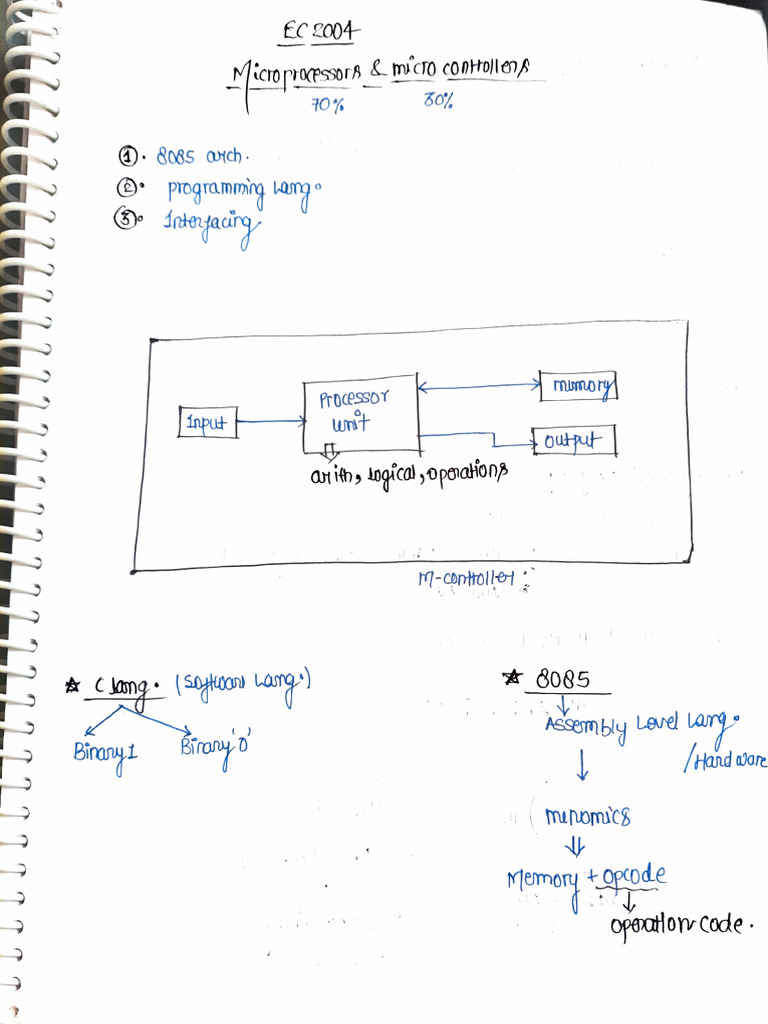 EC 2004
Microprocessors & micro controllers
70% 30%
①. 8085 arch.
②. programming Lang.
③. Interfacing
Input
Processor unit
memory
output
arith, logical, operations
M-controller
☆ C lang. (Software Lang.)
Binary 1 Binary '0'
☆ 8085
Assembly Level Lang.
/Hardware
menomics
Memory + opcode
operation code.